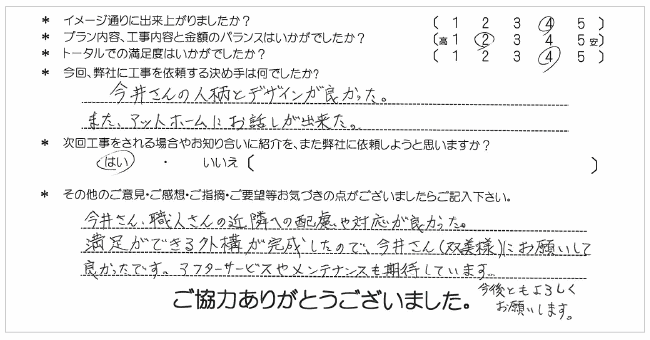 * イメージ通りに出来上がりましたか？ ( 1 2 3 4 5 )
* プラン内容、工事内容と金額のバランスはいかがでしたか？ (高 1 2 3 4 5 安)
* トータルでの満足度はいかがでしたか？ ( 1 2 3 4 5 )
* 今回、弊社に工事を依頼する決め手は何でしたか?
今井さんの人柄とデザインが良かった。
また、アットホームにお話しが出来た。
* 次回工事をされる場合やお知り合いに紹介を、また弊社に依頼しようと思いますか？
はい ・ いいえ ( )
* その他のご意見・ご感想・ご指摘・ご要望等お気づきの点がございましたらご記入下さい。
今井さん、職人さんの近隣への配慮や対応が良かった。
満足ができる外構が完成したので、今井さん(双美様)にお願いして
良かったです。アフターサービスやメンテナンスも期待しています。
今後ともよろしく
お願いします。
ご協力ありがとうございました。